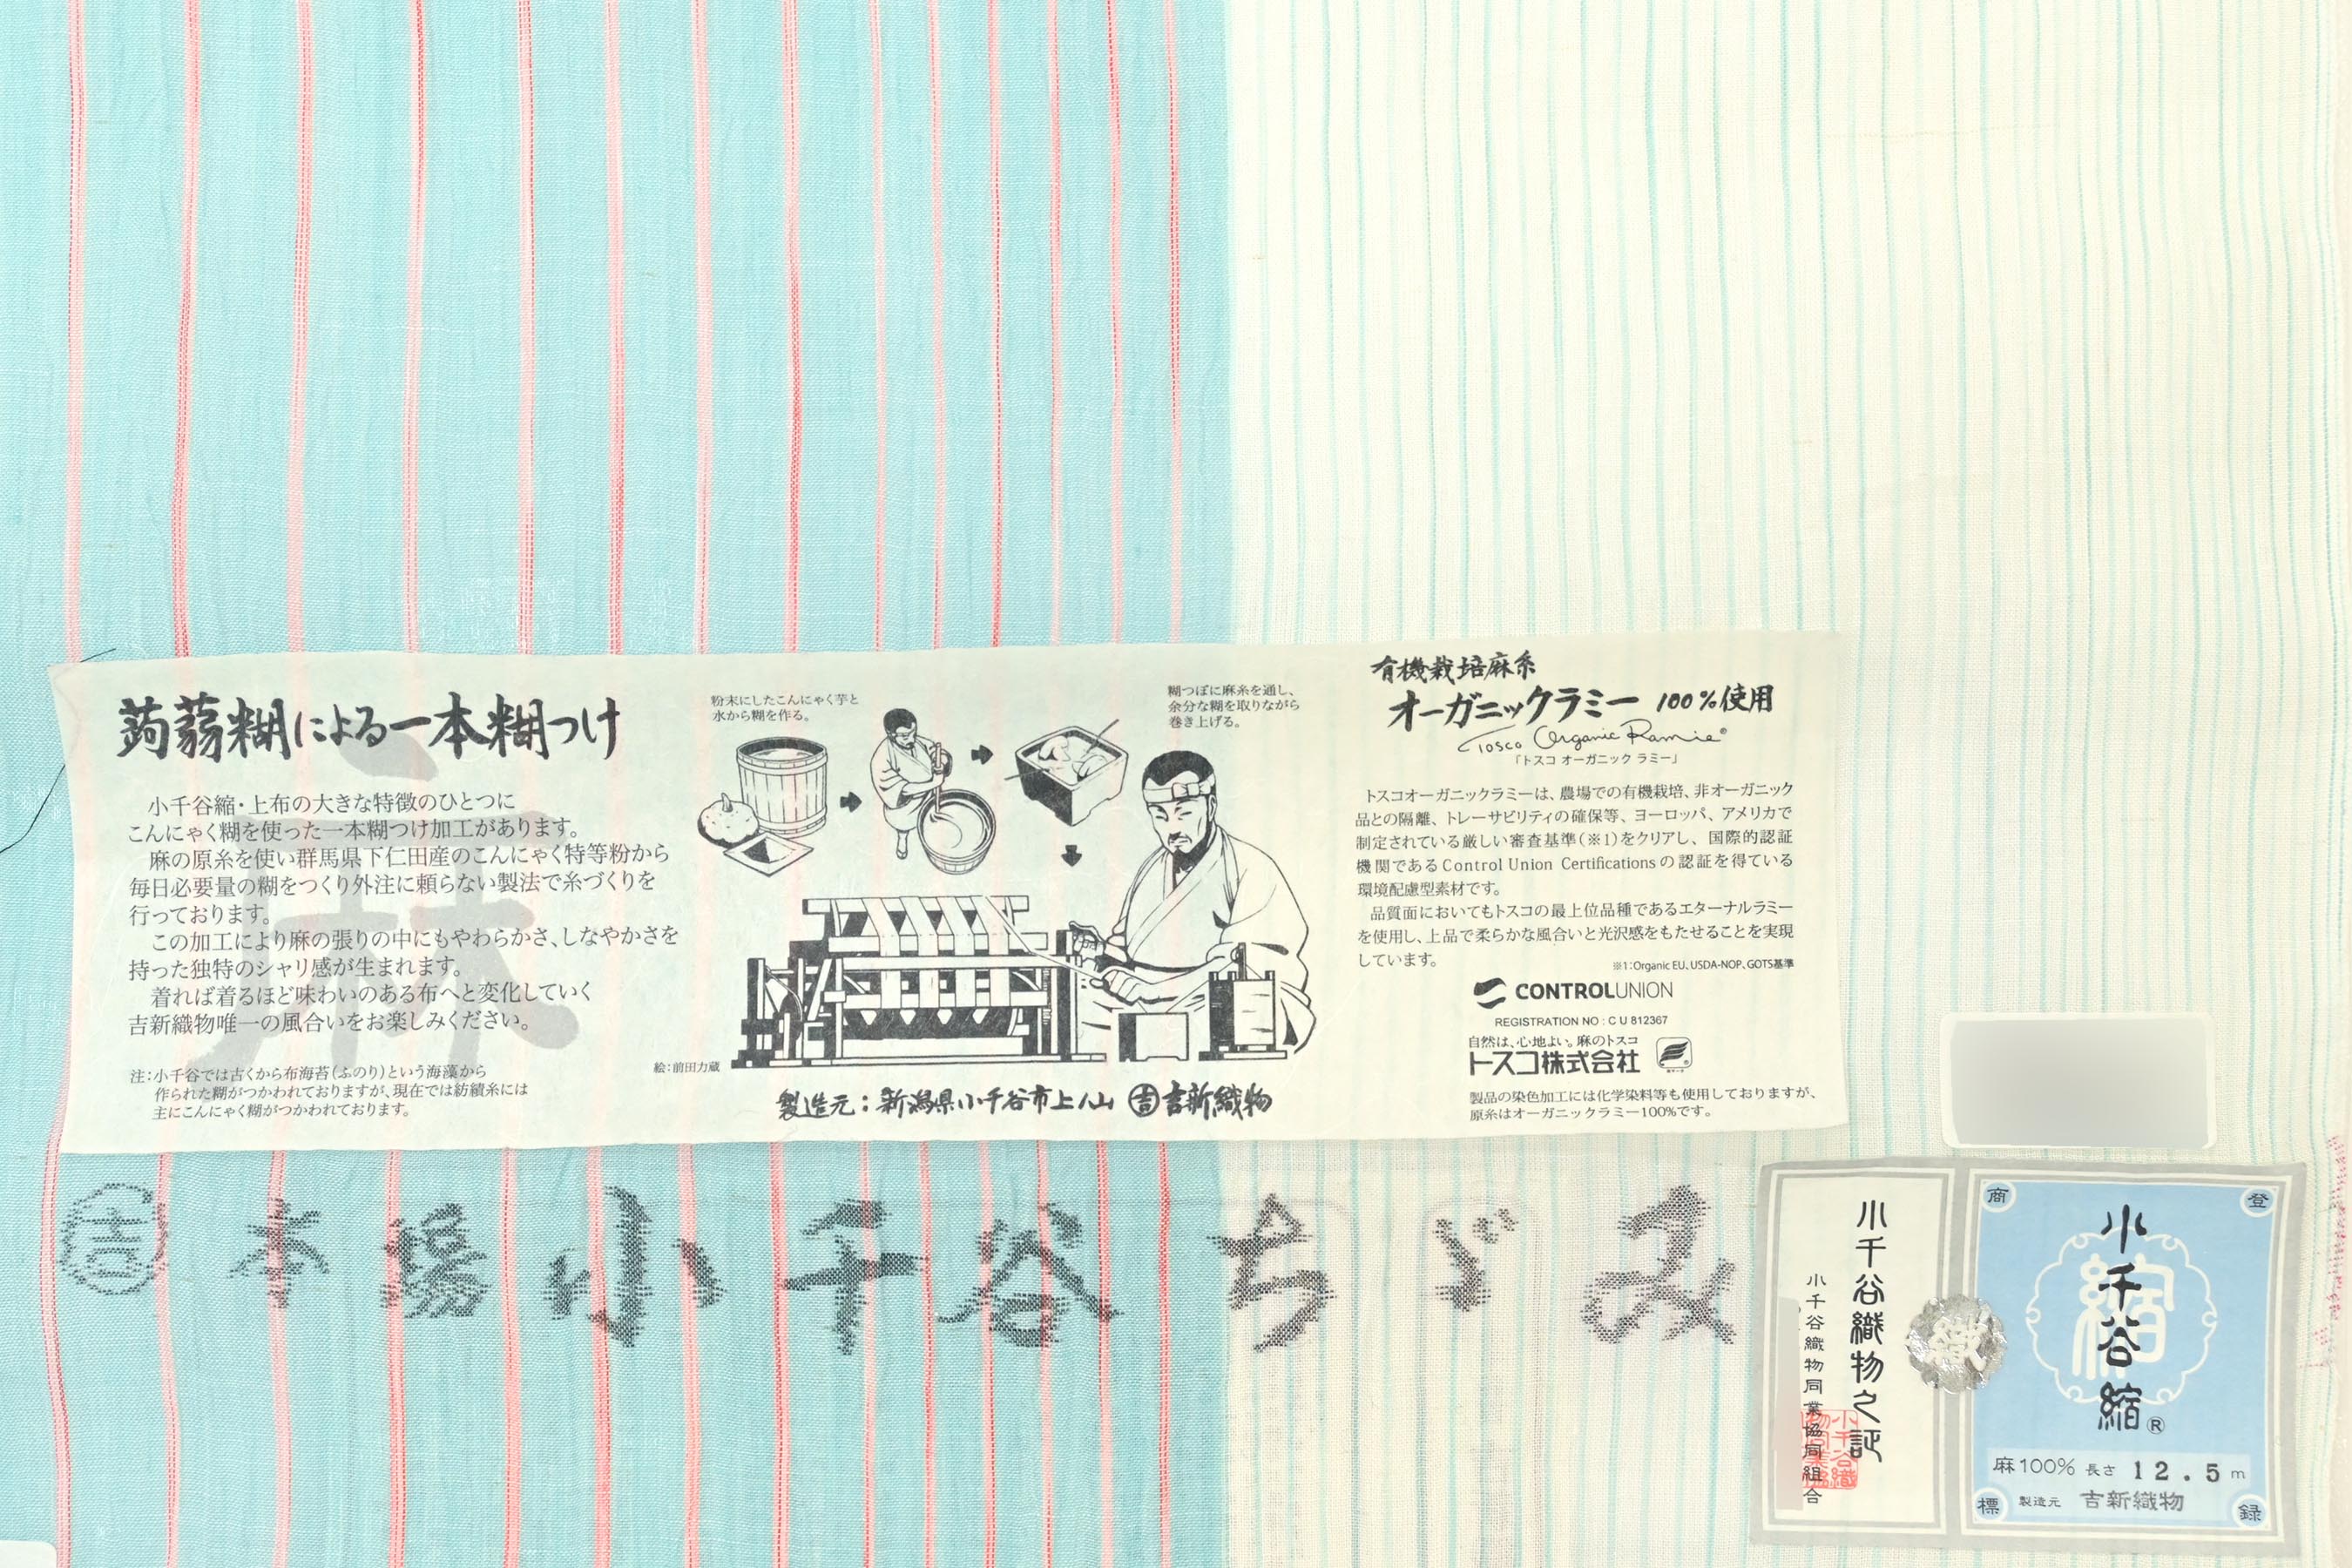 蒟蒻糊による一本糊つけ
小千谷縮・上布の大きな特徴のひとつに
こんにゃく糊を使った一本糊つけ加工があります。
麻の原糸を使い群馬県下仁田産のこんにゃく特等粉から
毎日必要量の糊をつくり外注に頼らない製法で糸づくりを
行っております。
この加工により麻の張りの中にもやわらかさ、しなやかさを
持った独特のシャリ感が生まれます。
着れば着るほど味わいのある布へと変化していく
吉新織物唯一の風合いをお楽しみください。
注:小千谷では古くから布海苔(ふのり)という海藻から
作られた糊がつかわれておりますが、現在では紡績糸には
主にこんにゃく糊がつかわれております。
麻
粉末にしたこんにゃく芋と
水から糊を作る。
糊つぼに麻糸を通し、
余分な糊を取りながら
巻き上げる。
絵:前田力蔵
製造元:新潟県小千谷市上ノ山 吉 吉新織物
有機栽培麻糸
オーガニックラミー 100%使用
Tosco Organic Ramie®
「トスコ オーガニック ラミー」
トスコオーガニックラミーは、農場での有機栽培、非オーガニック
品との隔離、トレーサビリティの確保等、ヨーロッパ、アメリカで
制定されている厳しい審査基準(※1)をクリアし、国際的認証
機関であるControl Union Certificationsの認証を得ている
環境配慮型素材です。
品質面においてもトスコの最上位品種であるエターナルラミー
を使用し、上品で柔らかな風合いと光沢感をもたせることを実現
しています。
※1:Organic EU、USDA-NOP、GOTS基準
CONTROLUNION
REGISTRATION NO : C U 812367
自然は、心地よい。麻のトスコ
トスコ株式会社
製品の染色加工には化学染料等も使用しておりますが、
原糸はオーガニックラミー100%です。
吉本場小千谷ちゞみ
小千谷織物之証
小千谷織物同業協同組合
織
商
登
標
録
縮
小千谷縮®
麻100% 長さ 12.5m
製造元 吉新織物